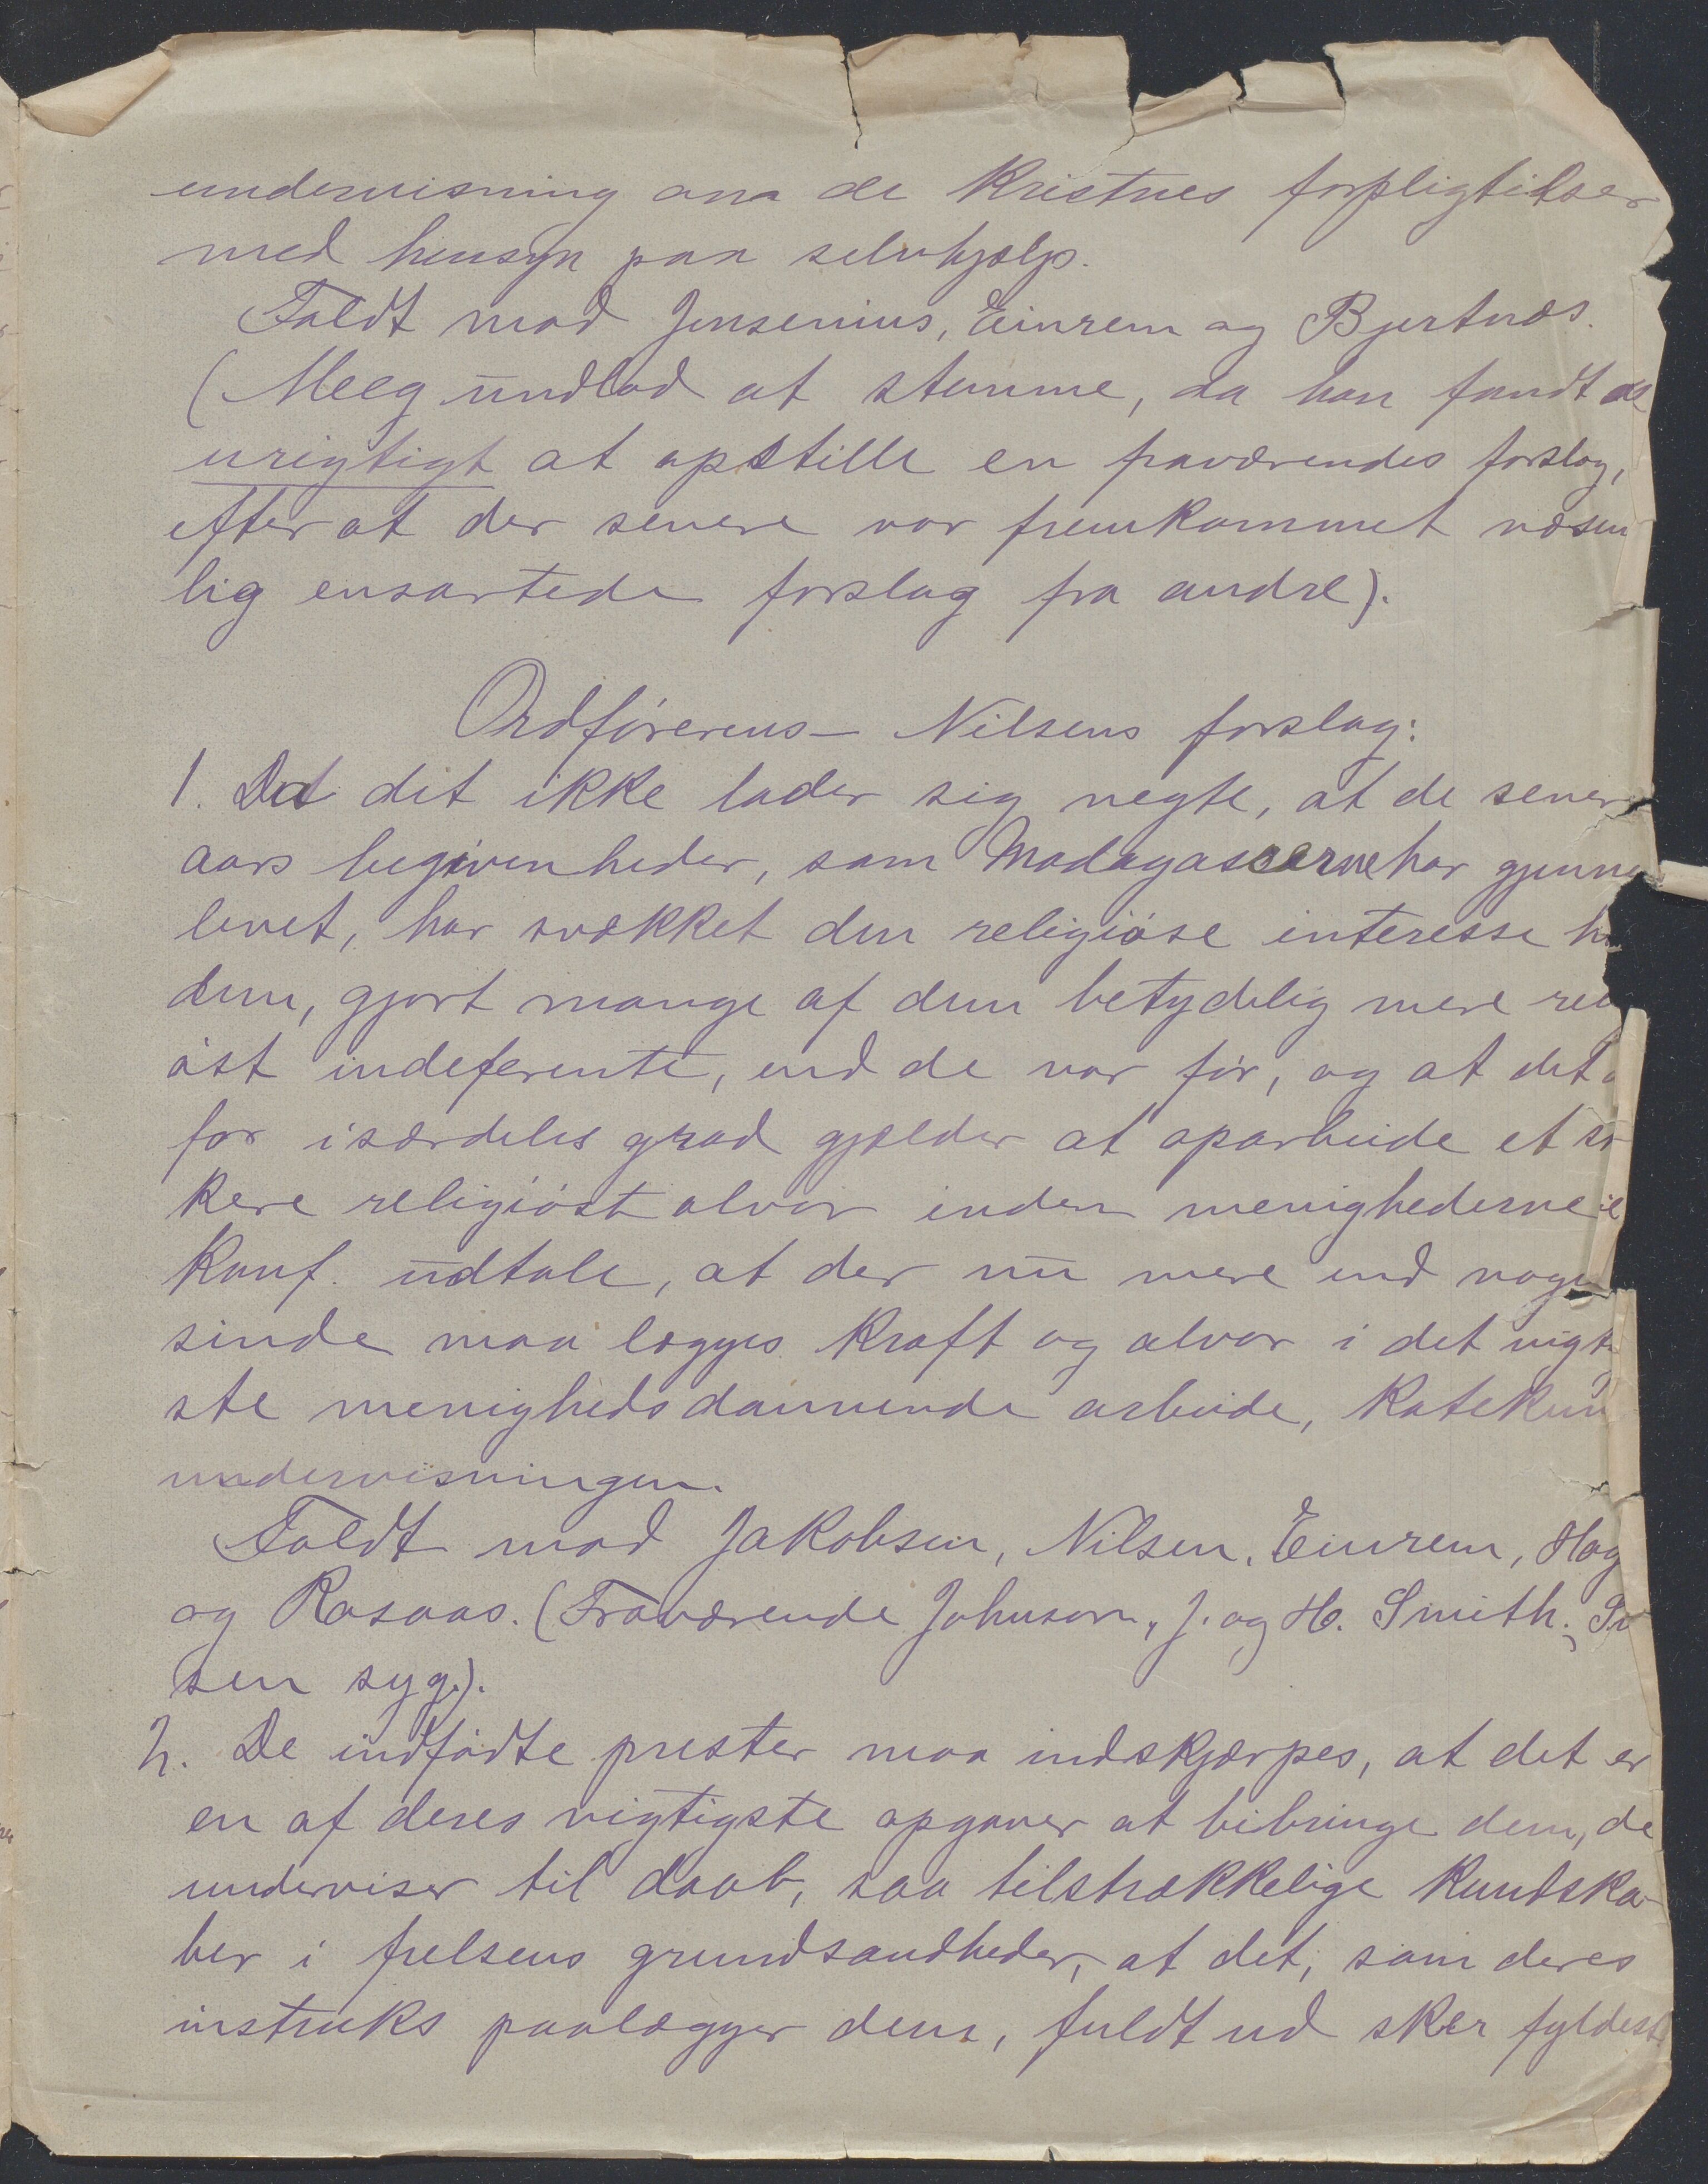 undervisning om de kristnes forpligtelser
med hensyn paa selvhjælp.
Faldt mod Jensenius, Einrem og Bjertnæs.
(Meeg undlod at stemme, da han fandt de
urigtigt at opstille en fraværendes forslag,
efter at der senere var fremkommet væsen
lig ensartede forslag fra andre).
Ordførerens – Nilsens forslag:
1. Da det ikke lader sig negte, at de sener
aars begivenheder, som Madagascarne har gjennem
levet, har svækket den religiøse interesse h
dem, gjort mange af dem betydelig mere reli
øst indeferente, end de var før, og at det
for i særdeles grad gjælder at oparbeide et
kere religiøst alvor inden menighederne
Konf. udtale, at der nu mere end nogen
sinde maa lægges kraft og alvor i det vigt
ste menighedsdannende arbeide, katekum
undervisningen.
Faldt mod Jakobsen, Nilsen, Einrem, Hag
og Rosaas. (Fraværende Johnson, J. og H. Smith;
sen syg.).
2. De indfødte prester maa indskjærpes, at det er
en af deres vigtigste opgaver at bibringe dem, de
underviser til daab, saa tilstrækkelige kundska-
ber i frelsens grundsandheder, at det, som deres
instruks paalægger dem, fuldt ud sker fyldest